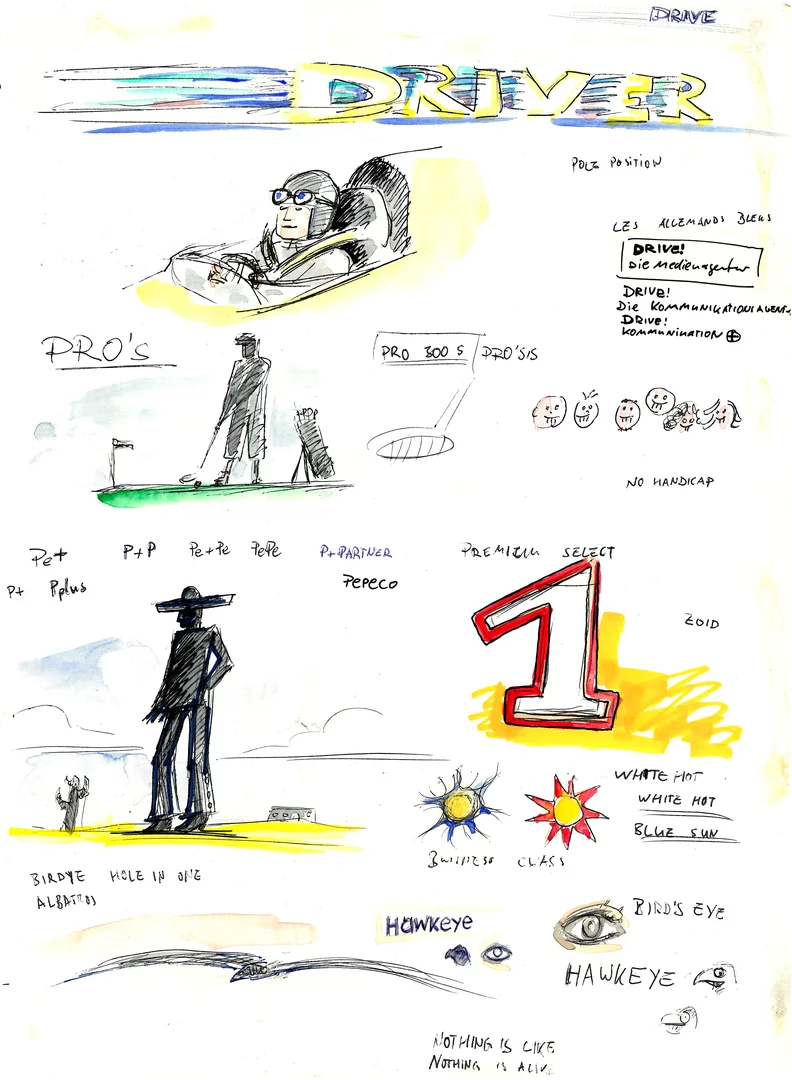 DRIVE
DRIVER
POLE POSITION
LES ALLEMANDS BLEUS
DRIVE!
Die Medienagentur
DRIVE!
Die KOMMUNIKATIONSAGENTUR
DRIVE!
KOMMUNIKATION
PRO'S
PRO 300 S
PRO'SIS
NO HANDICAP
Pe+
P+P
Pe+Pe
PePe
P+PARTNER
PREMIUM SELECT
P+
Pplus
PEPECO
1
ZOID
WHITE HOT
WHITE HOT
BLUE SUN
BUSINESS CLASS
BIRDYE HOLE IN ONE
ALBATROS
HAWKEYE
BIRD'S EYE
HAWKEYE
NOTHING IS LIKE
NOTHING IS ALIVE